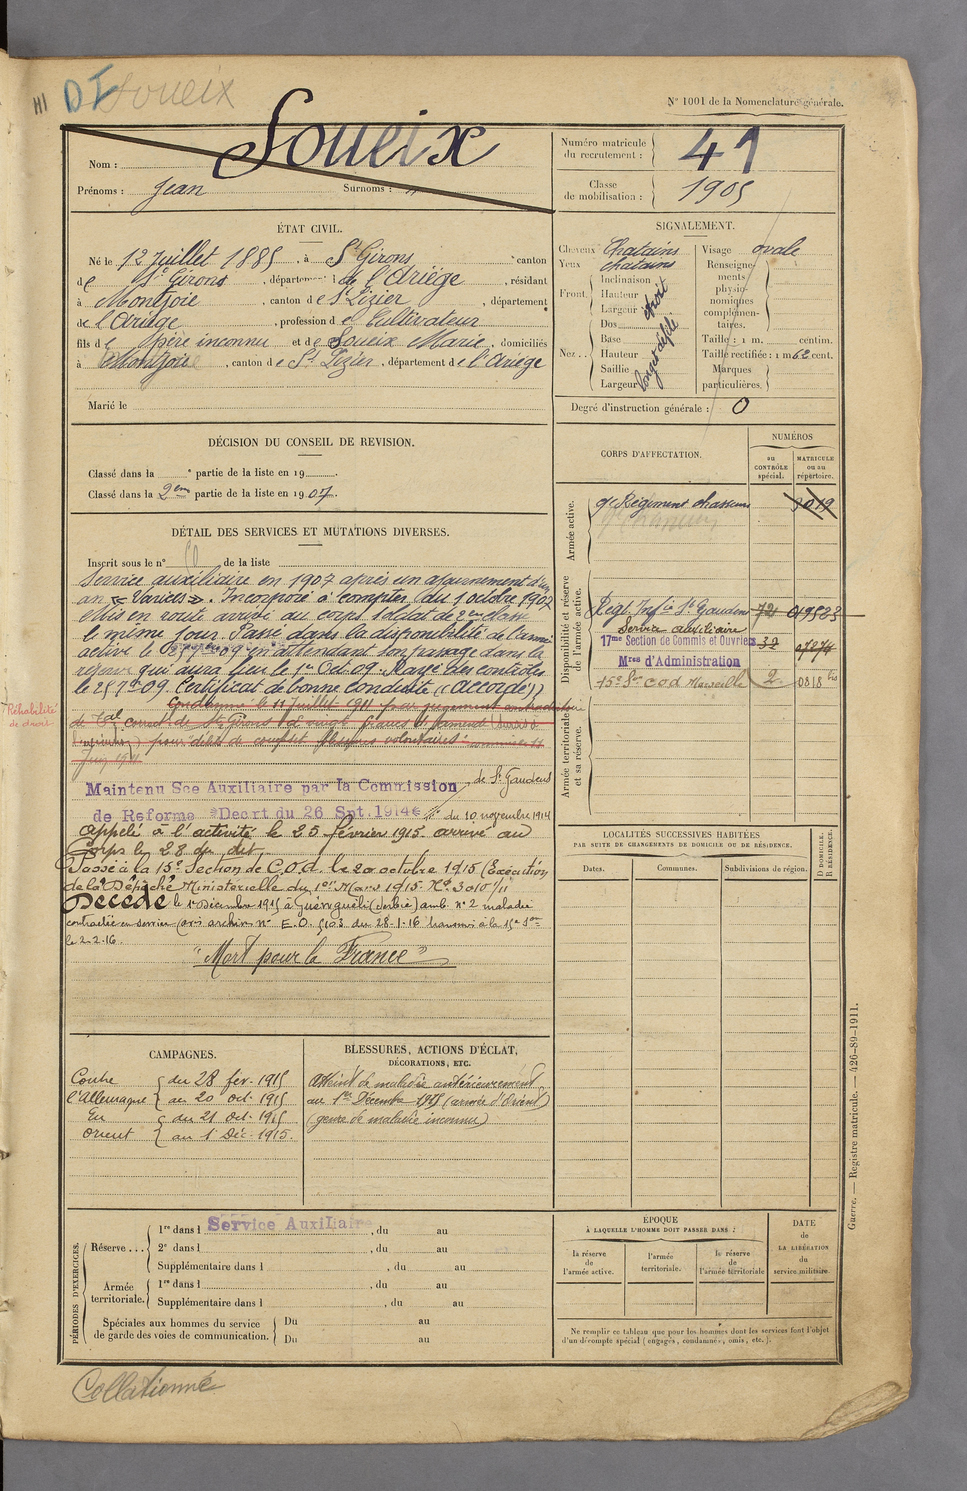 HI DI Soueix
N° 1001 de la Nomenclature générale.
Nom : Soueix
Prénoms : Jean Surnoms :
Numéro matricule du recrutement : 41
Classe de mobilisation : 1905
ÉTAT CIVIL.
Né le 12 Juillet 1885, à St Girons canton
de St Girons, département de l'Ariège, résidant
à Montjoie, canton de St Lizier, département
de l'Ariège, profession de Cultivateur
fils de père inconnu et de Soueix Marie, domiciliés
à Montjoie, canton de St Lizier, département de l'Ariège
Marié le
SIGNALEMENT.
Cheveux chatains
Yeux chatains
Front.
Inclinaison
Hauteur
Largeur droit
Nez...
Dos
Base
Hauteur
Saillie
Largeur
Visage ovale
Renseignements physionomiques complémentaires.
Taille : 1 m. centim.
Taille rectifiée : 1 m 62 cent.
Marques particulières.
Degré d'instruction générale : 0
DÉCISION DU CONSEIL DE REVISION.
Classé dans la e partie de la liste en 19
Classé dans la 2eme partie de la liste en 1907.
CORPS D'AFFECTATION.
NUMÉROS
au CONTRÔLE spécial.
MATRICULE ou au répertoire.
Armée active.
9e Régiment chasseurs 3019
Disponibilité et réserve de l'armée active.
Regt Infie St Gaudens 721 019583
Service auxiliaire
17me Section de Commis et Ouvriers 32 07274
Mres d'Administration
15e Son C.O.A Marseille 2 0818 bis
Armée territoriale et sa réserve.
DÉTAIL DES SERVICES ET MUTATIONS DIVERSES.
Inscrit sous le n° 60 de la liste
Service auxiliaire en 1907 après un ajournement d'un
an "Varices". Incorporé à compter du 1 octobre 1907
Mis en route arrivé au corps soldat de 2eme classe
le même jour. Passé dans la disponibilité de l'armée
active le 25 7bre 09 en attendant son passage dans la
réserve qui aura lieu le 1er Oct. 09. Rayé des contrôles
le 25 7bre 09. Certificat de bonne conduite "(accordé)"
Réhabilité de droit
Condamné le 11 Juillet 1911 par jugement contradictoire
du Tal correct. de St Girons à vingt francs d'amende (sursis à
l'exécution) pour délit de coups et blessures volontaires commises le 11
Juin 1911
Maintenu Sce Auxiliaire par la Commission de St Gaudens
de Reforme "Decrt du 26 Spt. 1914" du 10 novembre 1914
Appelé à l'activité le 25 février 1915. arrivé au
Corps le 28 du dit
Passé à la 15e Section de C.O.A. le 20 octobre 1915 (Exécution
de la Dépêche Ministérielle du 1er Mars 1915. N° 3010 1/11
Décédé le 1er Décembre 1915 à Guévguéli (Serbie) amb. n° 2 maladie
contractée en service (avis archives n° E.O. 5103 du 28-1-16 transmis à la 15e Son
le 2-2-16.
"Mort pour la France"
LOCALITÉS SUCCESSIVES HABITÉES
PAR SUITE DE CHANGEMENTS DE DOMICILE OU DE RÉSIDENCE.
Dates. Communes. Subdivisions de région.
D DOMICILE. R RÉSIDENCE.
CAMPAGNES.
Contre l'Allemagne { du 28 fév. 1915
au 20 oct. 1915
En Orient { du 21 oct. 1915
au 1er Déc. 1915.
BLESSURES, ACTIONS D'ÉCLAT,
DÉCORATIONS, ETC.
Atteint de maladie antérieurement
au 1er Décembre 1915 (armée d'Orient)
(genre de maladie inconnu)
PÉRIODES D'EXERCICES.
Réserve...
1re dans l Service Auxiliaire, du au
2e dans l , du au
Supplémentaire dans l , du au
Armée territoriale.
1re dans l , du au
Supplémentaire dans l , du au
Spéciales aux hommes du service de garde des voies de communication.
Du au
Du au
ÉPOQUE
À LAQUELLE L'HOMME DOIT PASSER DANS :
la réserve de l'armée active.
l'armée territoriale.
la réserve de l'armée territoriale
DATE de LA LIBÉRATION du service militaire.
Ne remplir ce tableau que pour les hommes dont les services font l'objet
d'un décompte spécial (engagés, condamnés, omis, etc.).
Guerre. — Registre matricule. — 426-89-1911.
Collationné